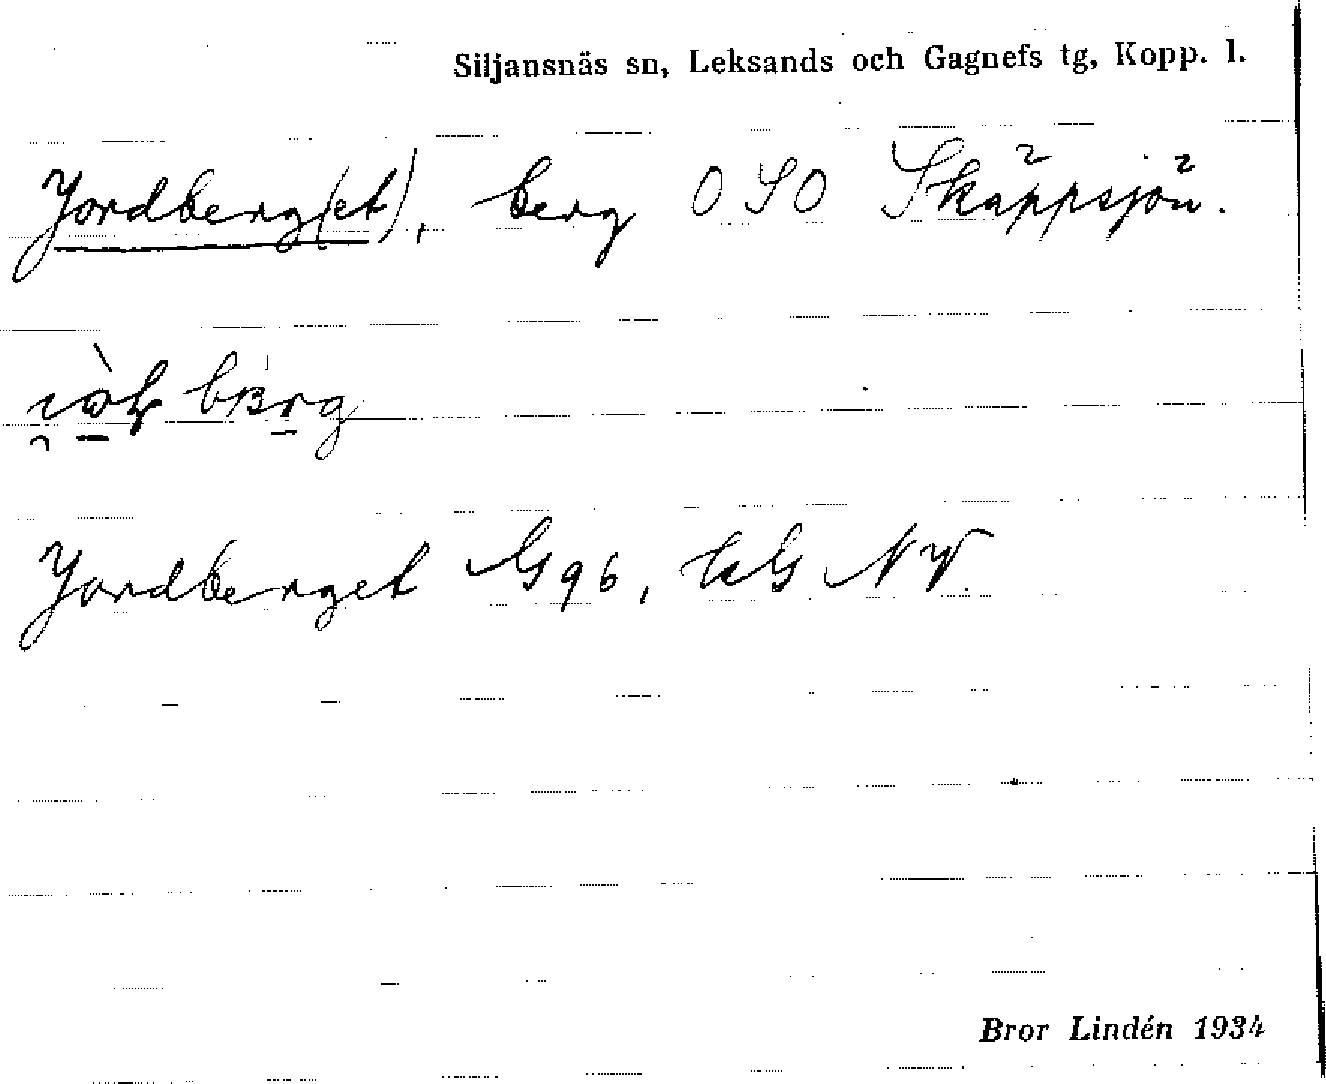 Siljansnäs sn, Leksands och Gagnefs tg, Kopp. l.
Jordberg(et), berg OSO Skäppsjön.
Jordberget G96, NV.
Bror Lindén 1934